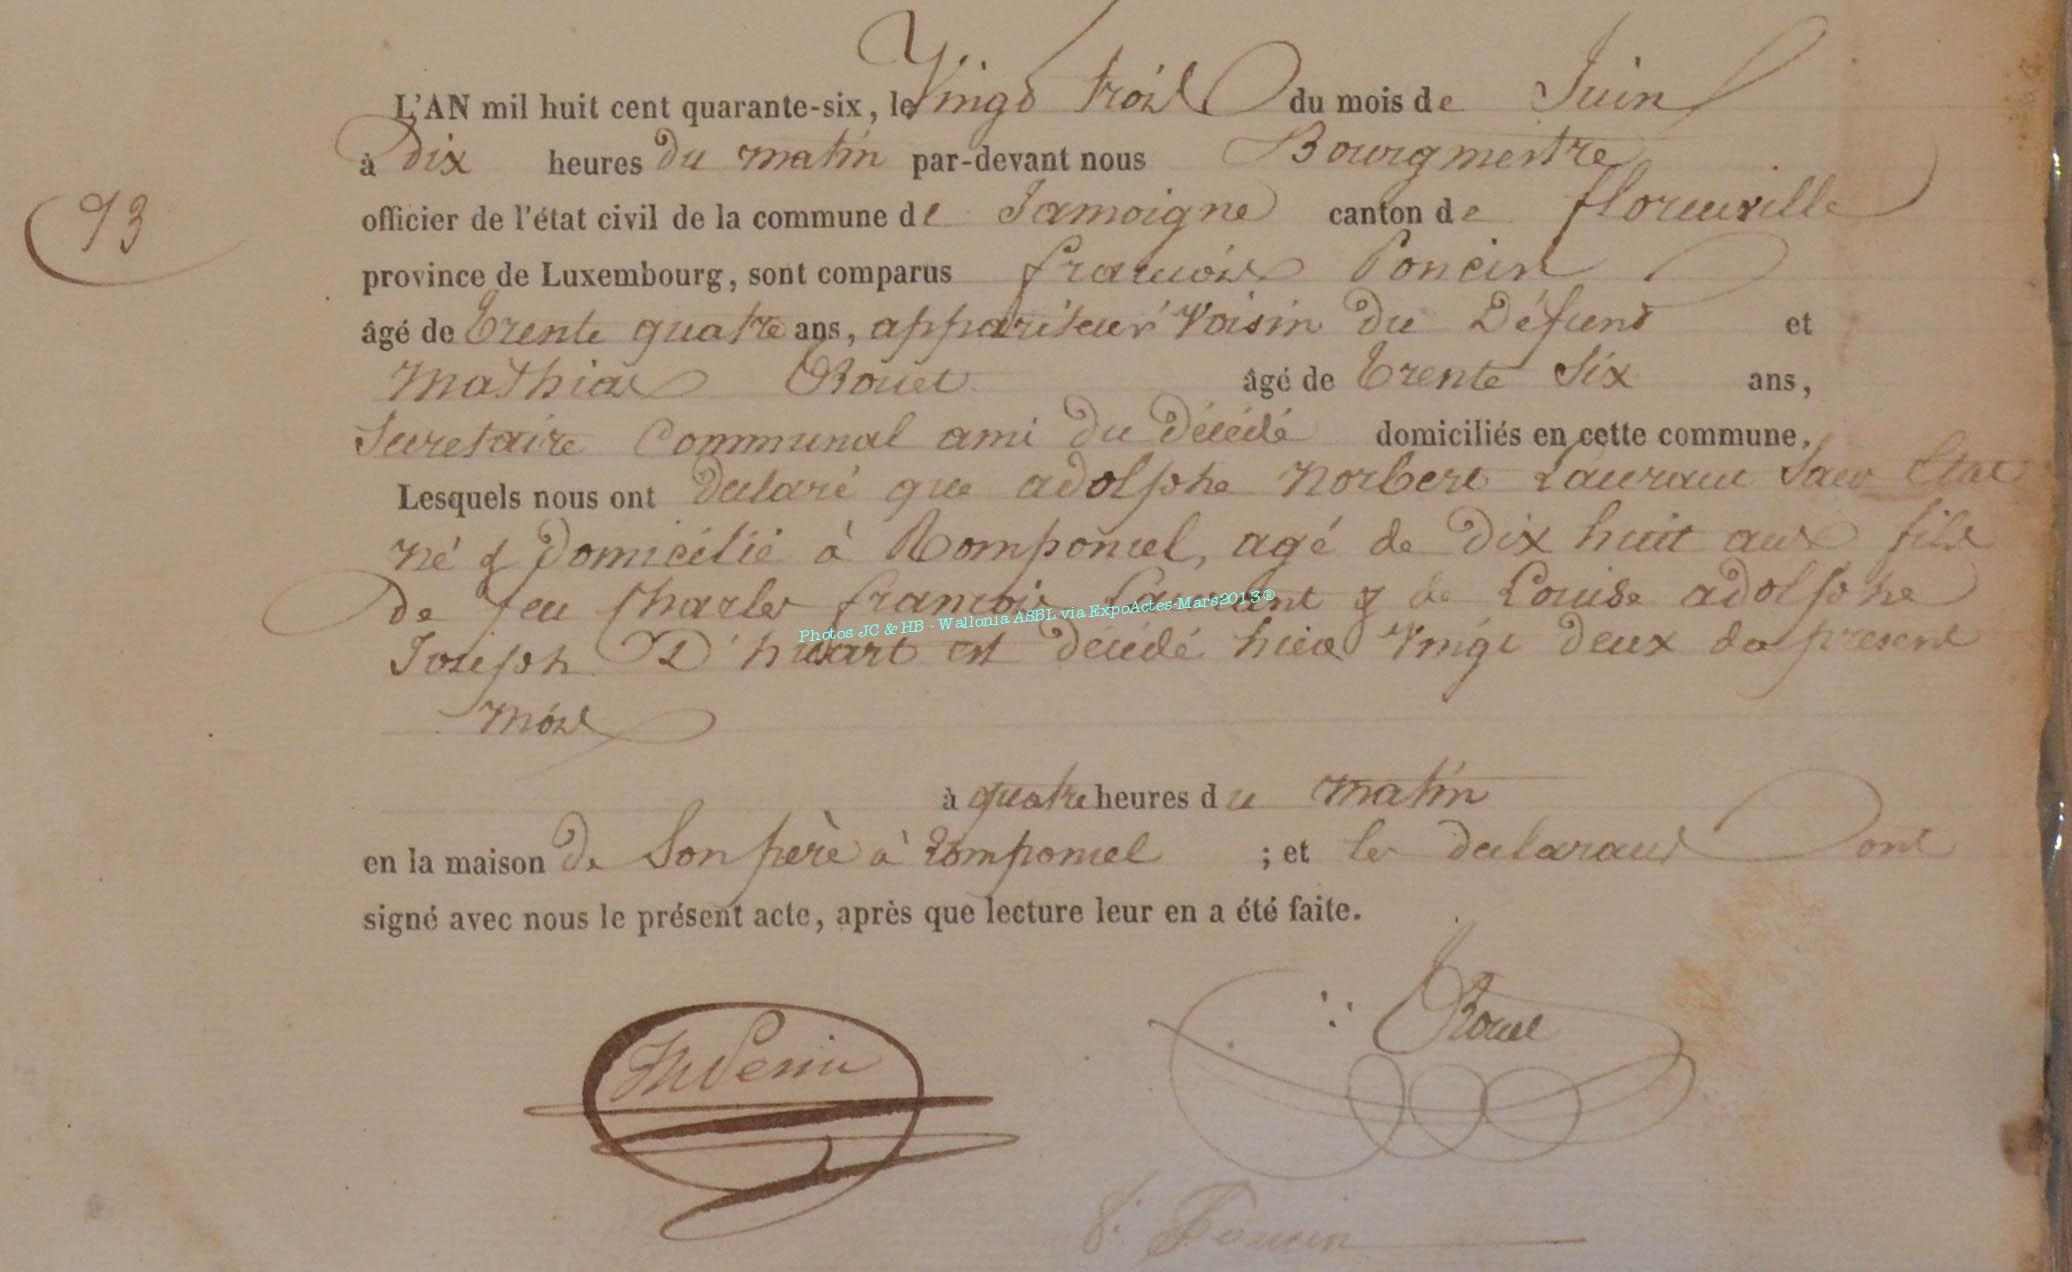 L'AN mil huit cent quarante-six, le Vingt trois du mois de Juin
à Dix heures du matin par-devant nous Bourgmestre
93
officier de l'état civil de la commune de Jamoigne canton de florenville
province de Luxembourg, sont comparus françois Poncin
âgé de Trente quatre ans, appariteur Voisin du Défunt et
Mathias Rouet âgé de Trente Six ans,
Secretaire Communal ami du Décédé domiciliés en cette commune.
Lesquels nous ont declaré que adolphe Norbert Laurant Sans Etat
né & Domicilié à Romponcel, agé de Dix huit ans fils
De feu Charles françois Laurent & de Louise adolphe
Joseph D'huart est décédé hier Vingt deux du present
Mois
à quatre heures du matin
en la maison de Son père à romponcel ; et les declarans ont
signé avec nous le présent acte, après que lecture leur en a été faite.
Rouet
f. Poncin
Photos JC & HB - Wallonia ASBL via ExpoActes-Mars2013®